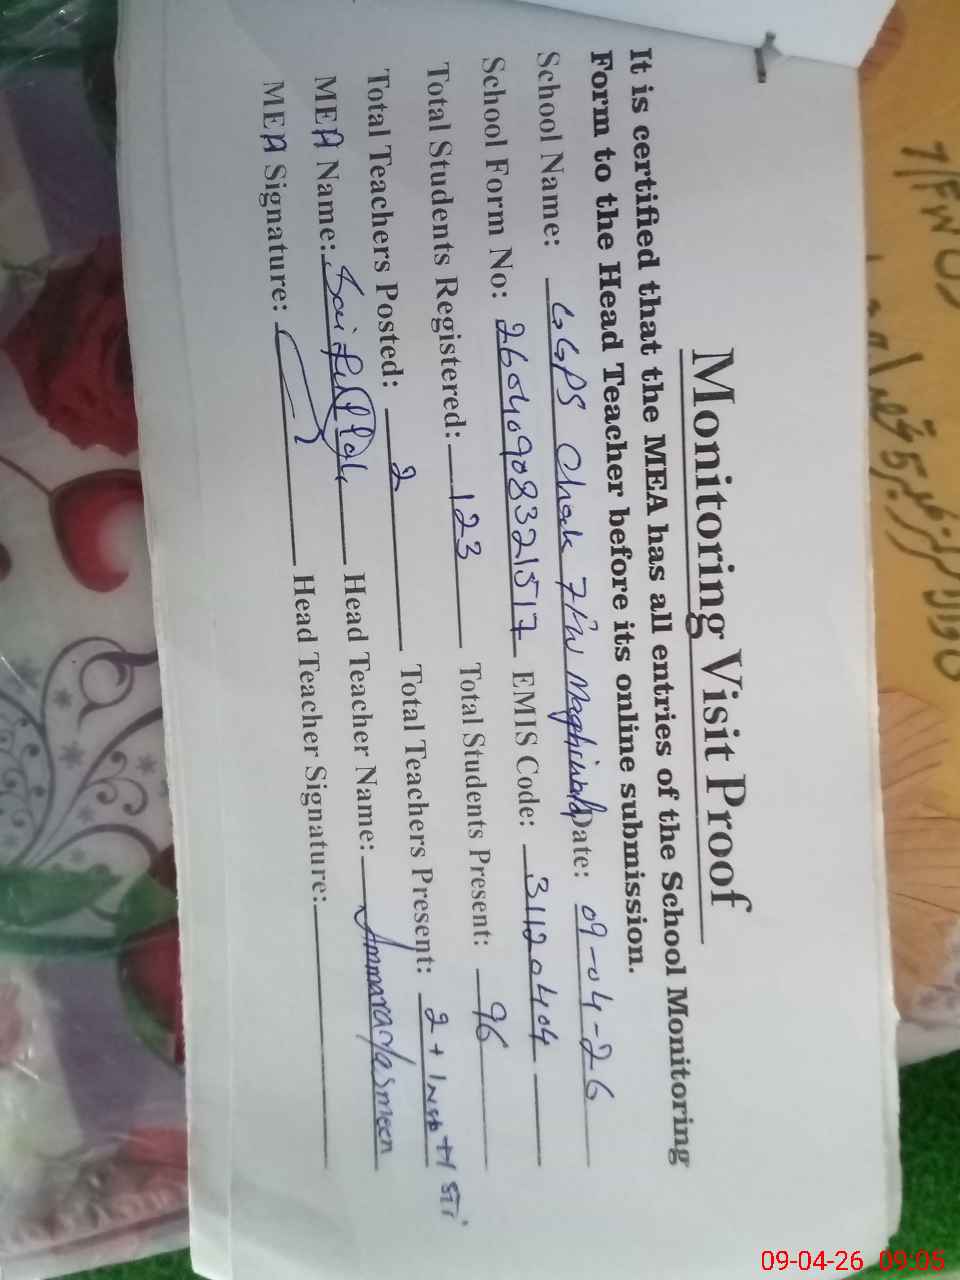 Monitoring Visit Proof
It is certified that the MEA has all entries of the School Monitoring
Form to the Head Teacher before its online submission.
School Name: GGPS Chak 7/FW Maghiwala Date: 09-04-26
School Form No: 26040908321517 EMIS Code: 31120404
Total Students Registered: 123 Total Students Present: 96
Total Teachers Posted: 2 Total Teachers Present: 2 + 1 +1 STI
MEA Name: Saifullah Head Teacher Name: Ammara Yasmeen
MEA Signature: Head Teacher Signature:
7/FW
09-04-26 09:05